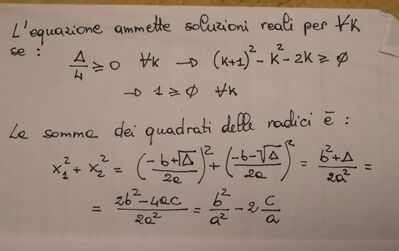 L'equazione ammette soluzioni reali per ∀K
se :
Δ/4 ≥ 0 ∀k → (k+1)² - k² - 2k ≥ 0
→ 1 ≥ 0 ∀k
La somma dei quadrati delle radici è :
x₁² + x₂² = ((-b+√Δ)/2a)² + ((-b-√Δ)/2a)² = (b²+Δ)/2a² =
= (2b²-4ac)/2a² = b²/a² - 2 c/a